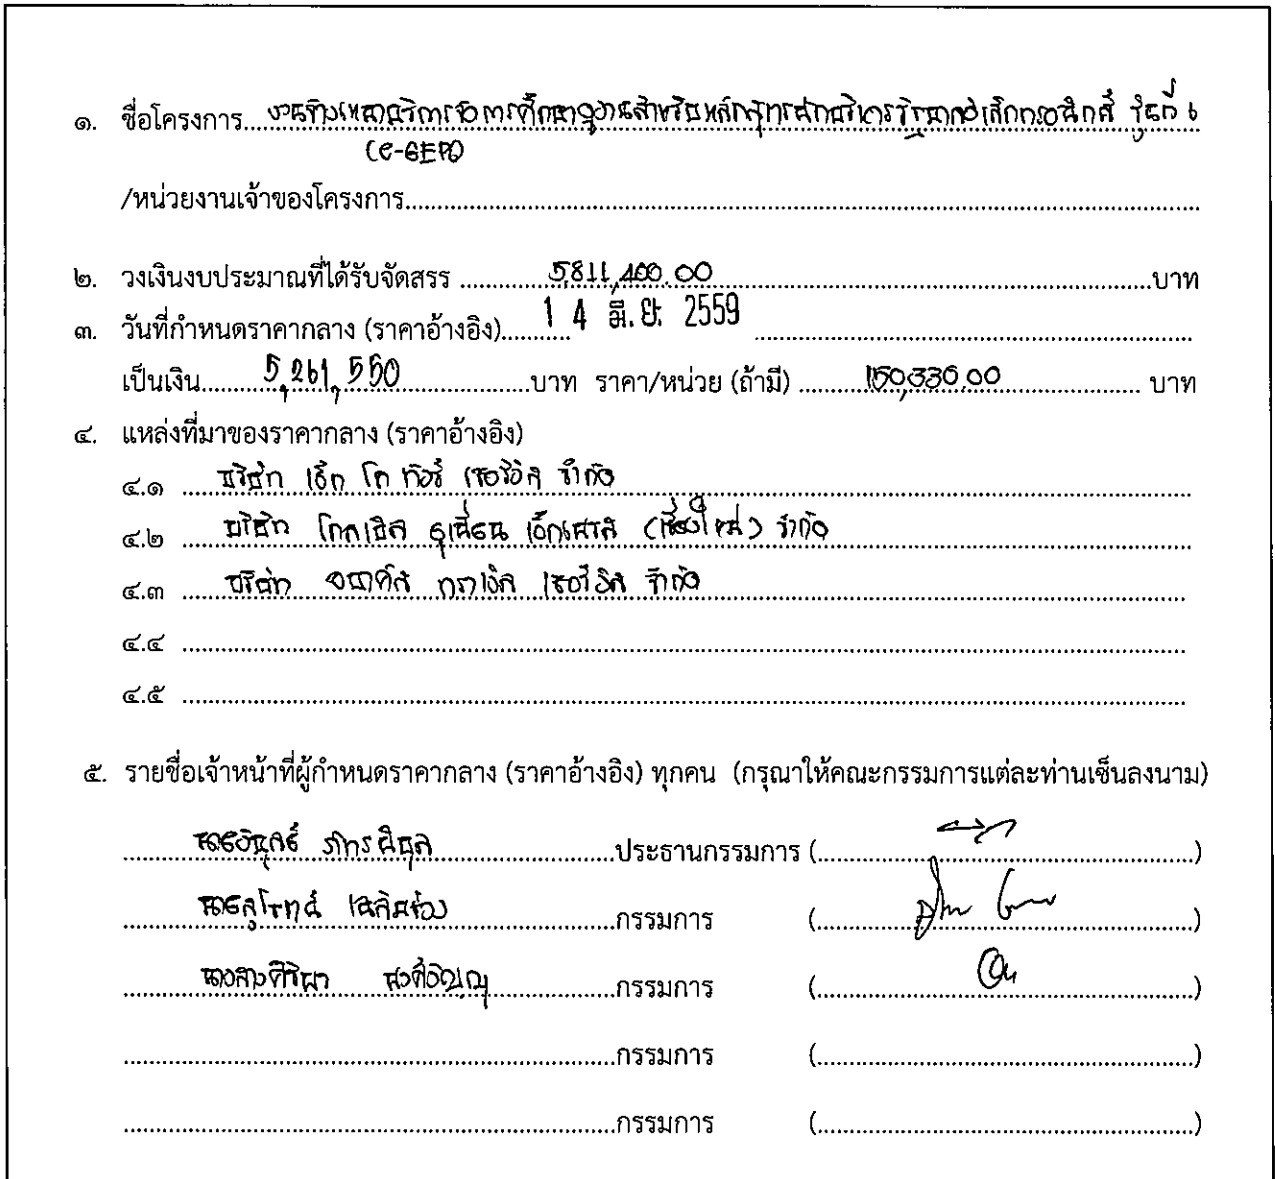 ๑. ชื่อโครงการ...งานจ้างเหมาบริการจัดการศึกษาดูงานสำหรับหลักสูตรนักบริหารรัฐบาลอิเล็กทรอนิกส์ รุ่นที่ ๖
(e-GEP)
/หน่วยงานเจ้าของโครงการ
๒. วงเงินงบประมาณที่ได้รับจัดสรร 5,811,400.00 บาท
๓. วันที่กำหนดราคากลาง (ราคาอ้างอิง) 1 4 มิ.ย. 2559
เป็นเงิน 5,261,550 บาท ราคา/หน่วย (ถ้ามี) 150,330.00 บาท
๔. แหล่งที่มาของราคากลาง (ราคาอ้างอิง)
๔.๑ บริษัท เอ็ก โค ทัวร์ เซอร์วิส จำกัด
๔.๒ บริษัท โกลเบิล ยูเนี่ยน เอ็กเพรส (เชียงใหม่) จำกัด
๔.๓ บริษัท ทราเวิล เซอร์วิส จำกัด
๔.๔
๔.๕
๕. รายชื่อเจ้าหน้าที่ผู้กำหนดราคากลาง (ราคาอ้างอิง) ทุกคน (กรุณาให้คณะกรรมการแต่ละท่านเซ็นลงนาม)
ประธานกรรมการ ( )
กรรมการ ( )
กรรมการ ( )
กรรมการ ( )
กรรมการ ( )